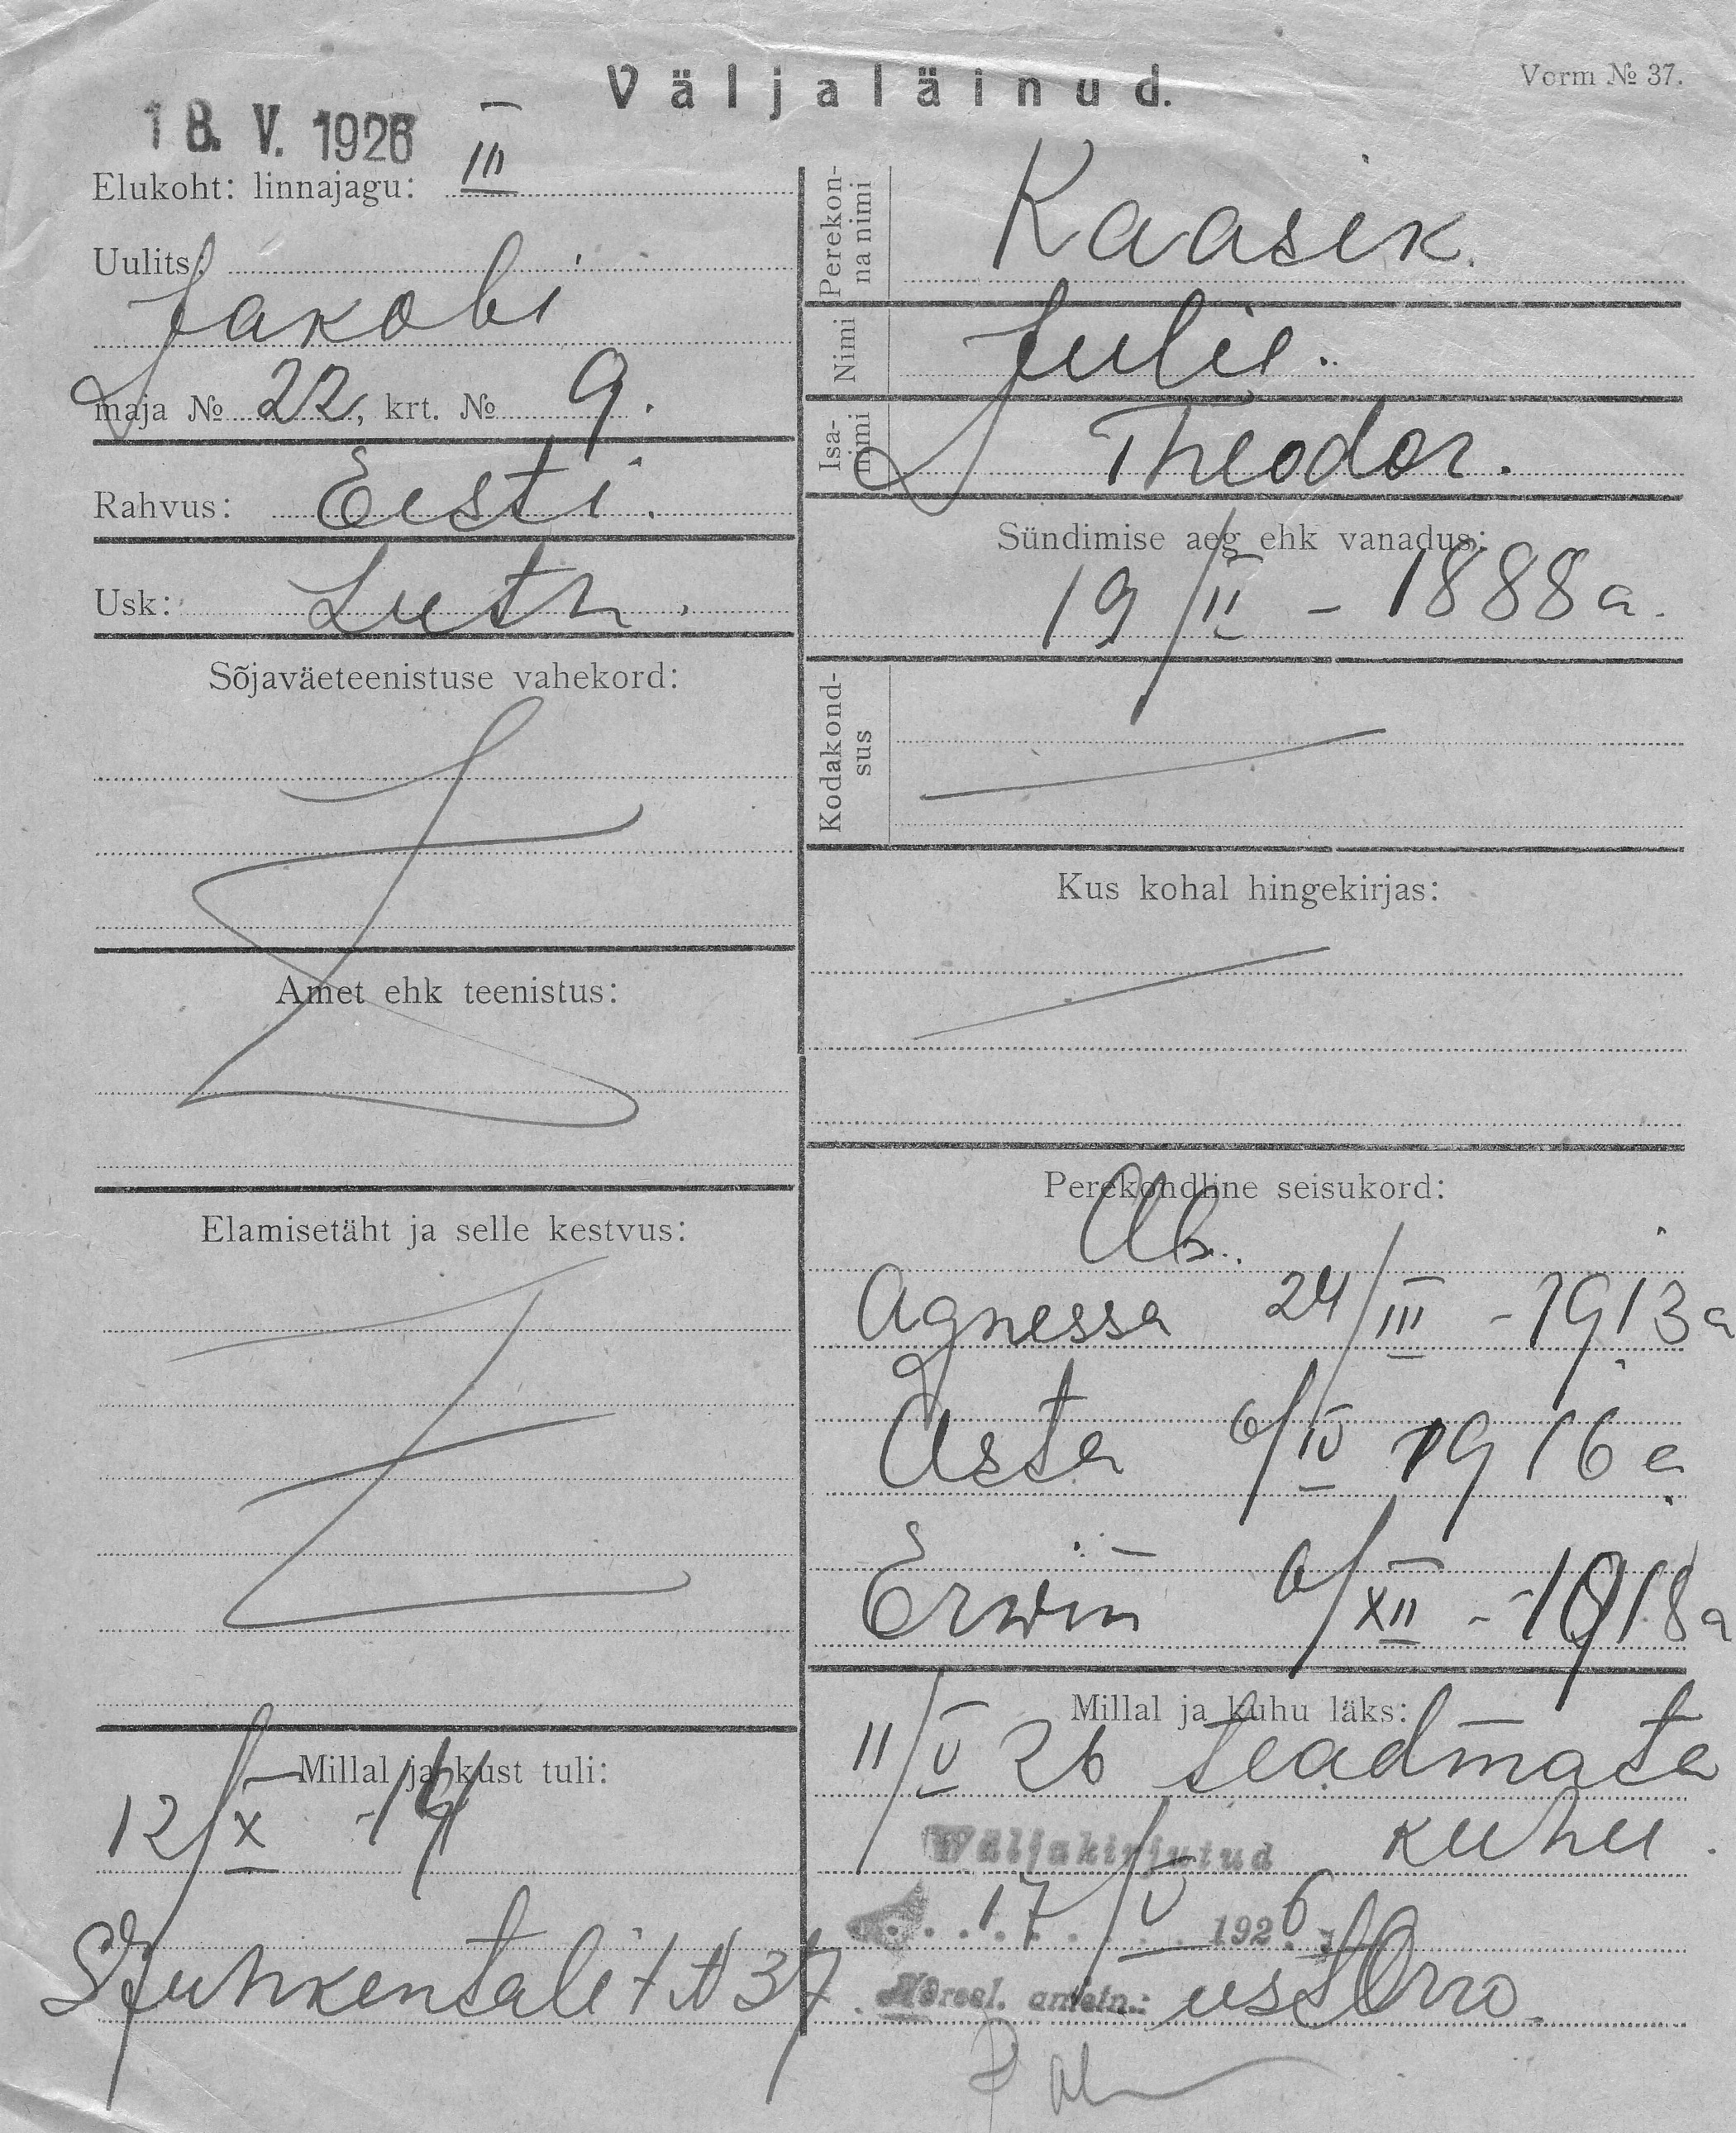 Väljaläinud.
Vorm № 37.
18. V. 1926
Elukoht: linnajagu: III
Uulits: Jakobi
maja № 22, krt. № 9.
Rahvus: Eesti.
Usk: Luth.
Sõjaväeteenistuse vahekord:
Amet ehk teenistus:
Elamisetäht ja selle kestvus:
Millal ja kust tuli:
12/X
Juhkentali t № 37
Perekon-
na nimi
Kaasik.
Nimi
Julie.
Isa-
nimi
Theodor.
Sündimise aeg ehk vanadus:
19/II - 1888 a.
Kodakond-
sus
Kus kohal hingekirjas:
Perekondline seisukord:
Ab.
Agnessa 24/III - 1913 a
Asta 6/IV 1916 a
Erwin 6/XII - 1918 a
Millal ja kuhu läks:
11/V 26 teadmata
kuhu.
Wäljakirjutud
17/V 1926
Adresl. ametn.: